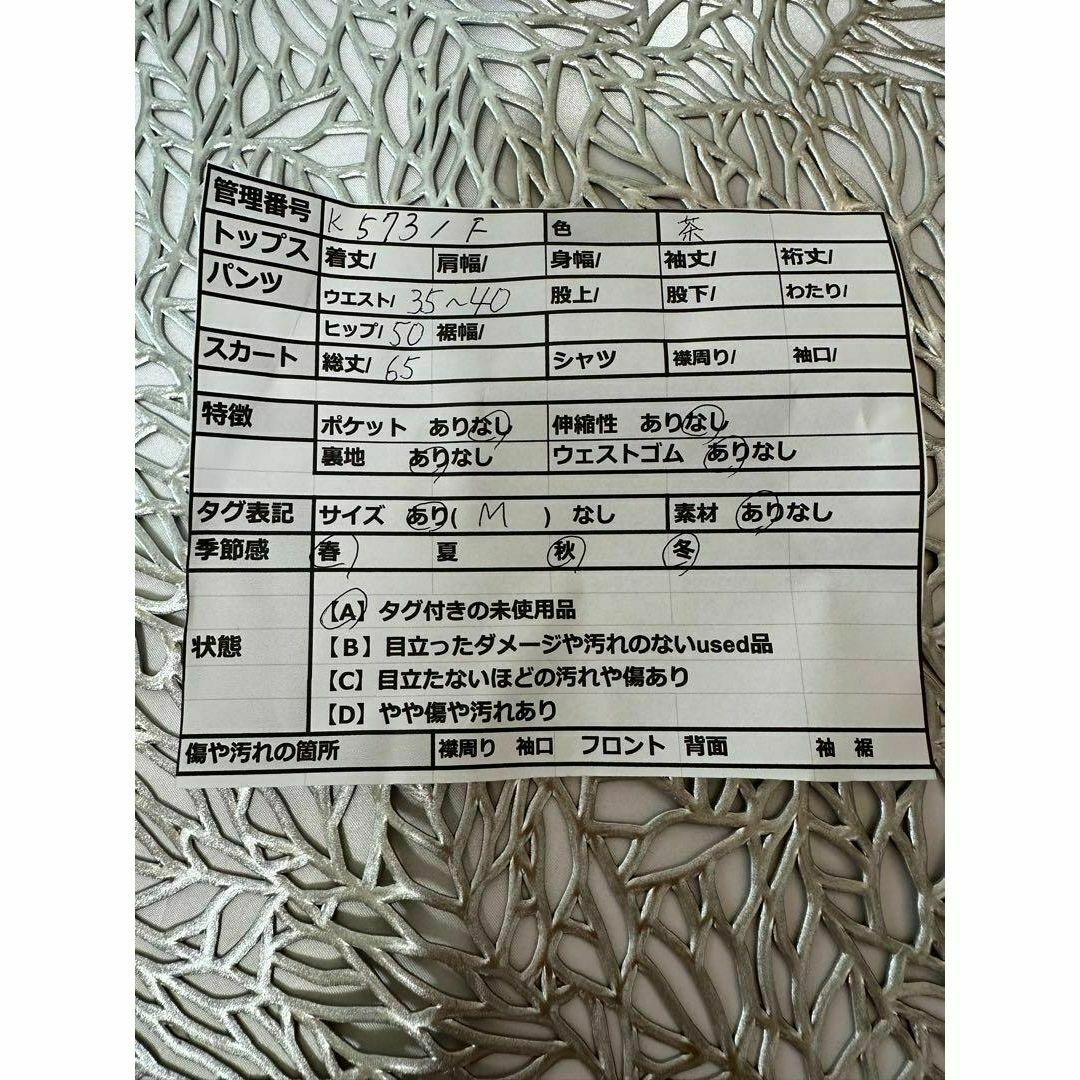 管理番号 K5731F 色 茶
トップス 着丈/ 肩幅/ 身幅/ 袖丈/ 裄丈/
パンツ ウエスト/ 35~40 股上/ 股下/ わたり/
ヒップ/ 50 裾幅/
スカート 総丈/ 65 シャツ 襟周り/ 袖口/
特徴 ポケット ありなし 伸縮性 ありなし
裏地 ありなし ウェストゴム ありなし
タグ表記 サイズ あり( M ) なし 素材 ありなし
季節感 春 夏 秋 冬
【A】タグ付きの未使用品
状態 【B】目立ったダメージや汚れのないused品
【C】目立たないほどの汚れや傷あり
【D】やや傷や汚れあり
傷や汚れの箇所 襟周り 袖口 フロント 背面 袖 裾